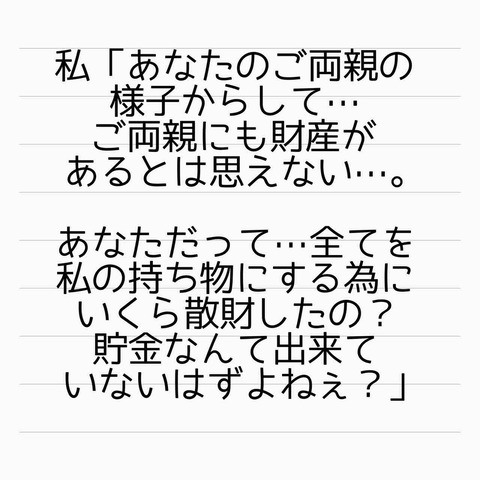 私「あなたのご両親の
様子からして…
ご両親にも財産が
あるとは思えない…。
あなただって…全てを
私の持ち物にする為に
いくら散財したの？
貯金なんて出来て
いないはずよねぇ？」